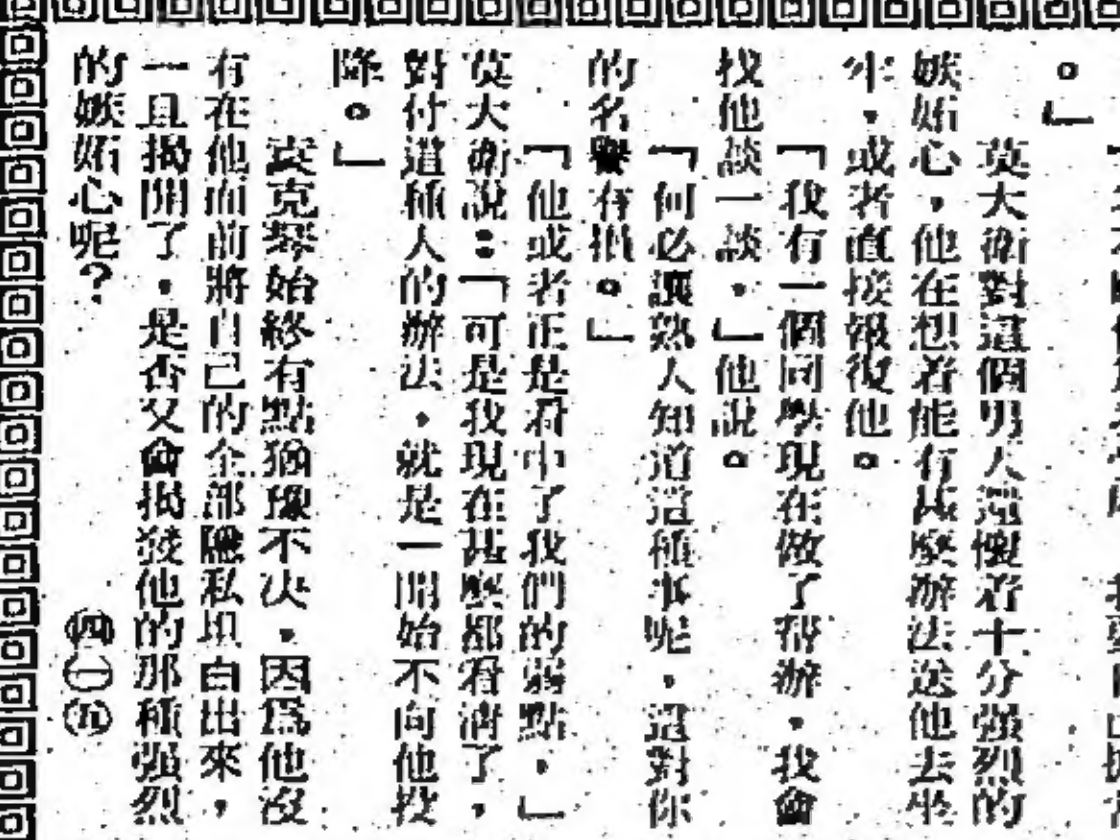 。」
莫大衛對這個男人還懷着十分强烈的
嫉妬心，他在想着能有甚麼辦法送他去坐
牢，或者直接報復他。
「我有一個同學現在做了幫辦，我會
找他談一談，」他說。
「何必讓熟人知道這種事呢，這對你
的名譽有損。」
「他或者正是看中了我們的弱點，」
莫大衛說：「可是我現在甚麼都看淸了，
對付這種人的辦法，就是一開始不向他投
降。」
袁克琴始終有點猶豫不决，因爲他沒
有在他面前將自己的全部隱私坦白出來，
一旦揭開了，是否又會揭發他的那種强烈
的嫉妬心呢？
㊃㊀㊄